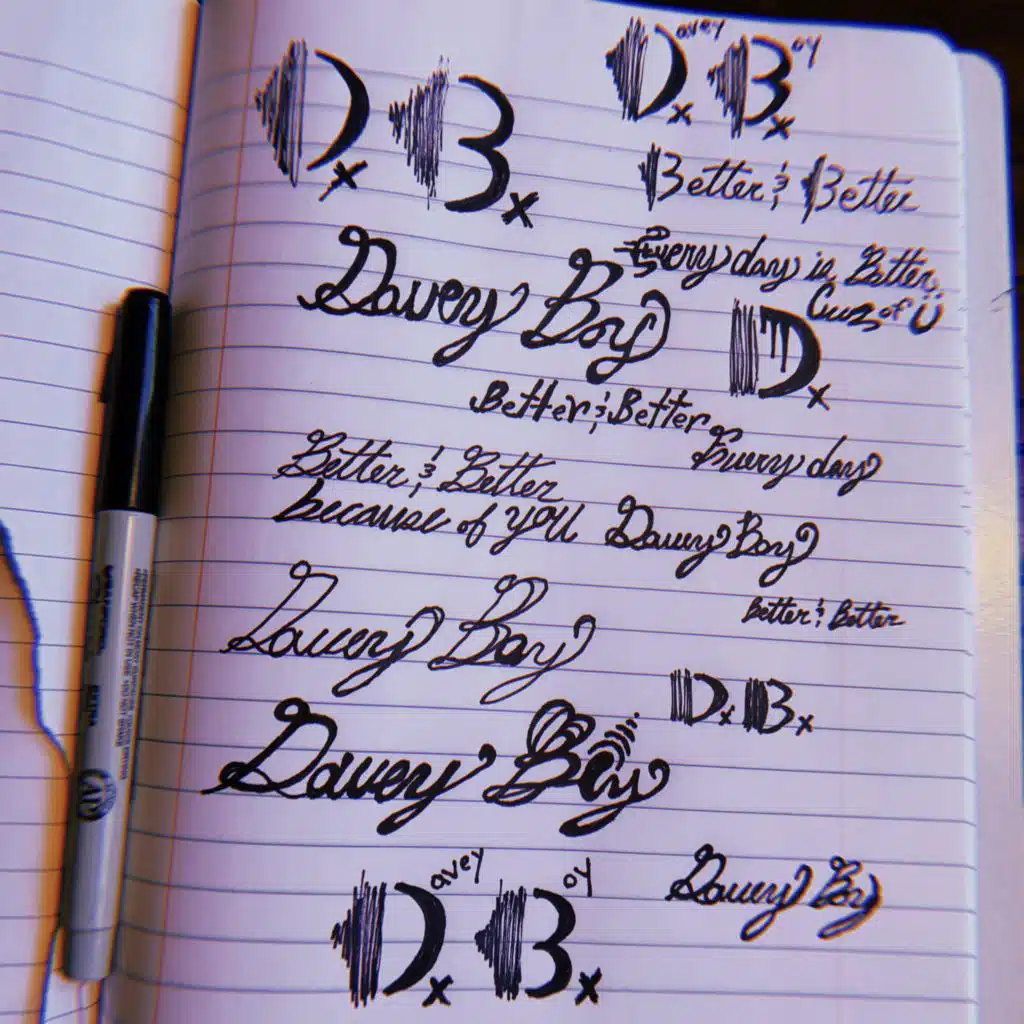 Davey Boy
Dx Bx
Dx Bx
Better & Better
Every day is Better
Cuz of Ü
Davey Boy
Dx
Better & Better
Every day
Better & Better
because of you
Davey Boy
Davey Boy
Better & Better
Dx Bx
Davey Boy
Davey Boy
Davey Boy
x x